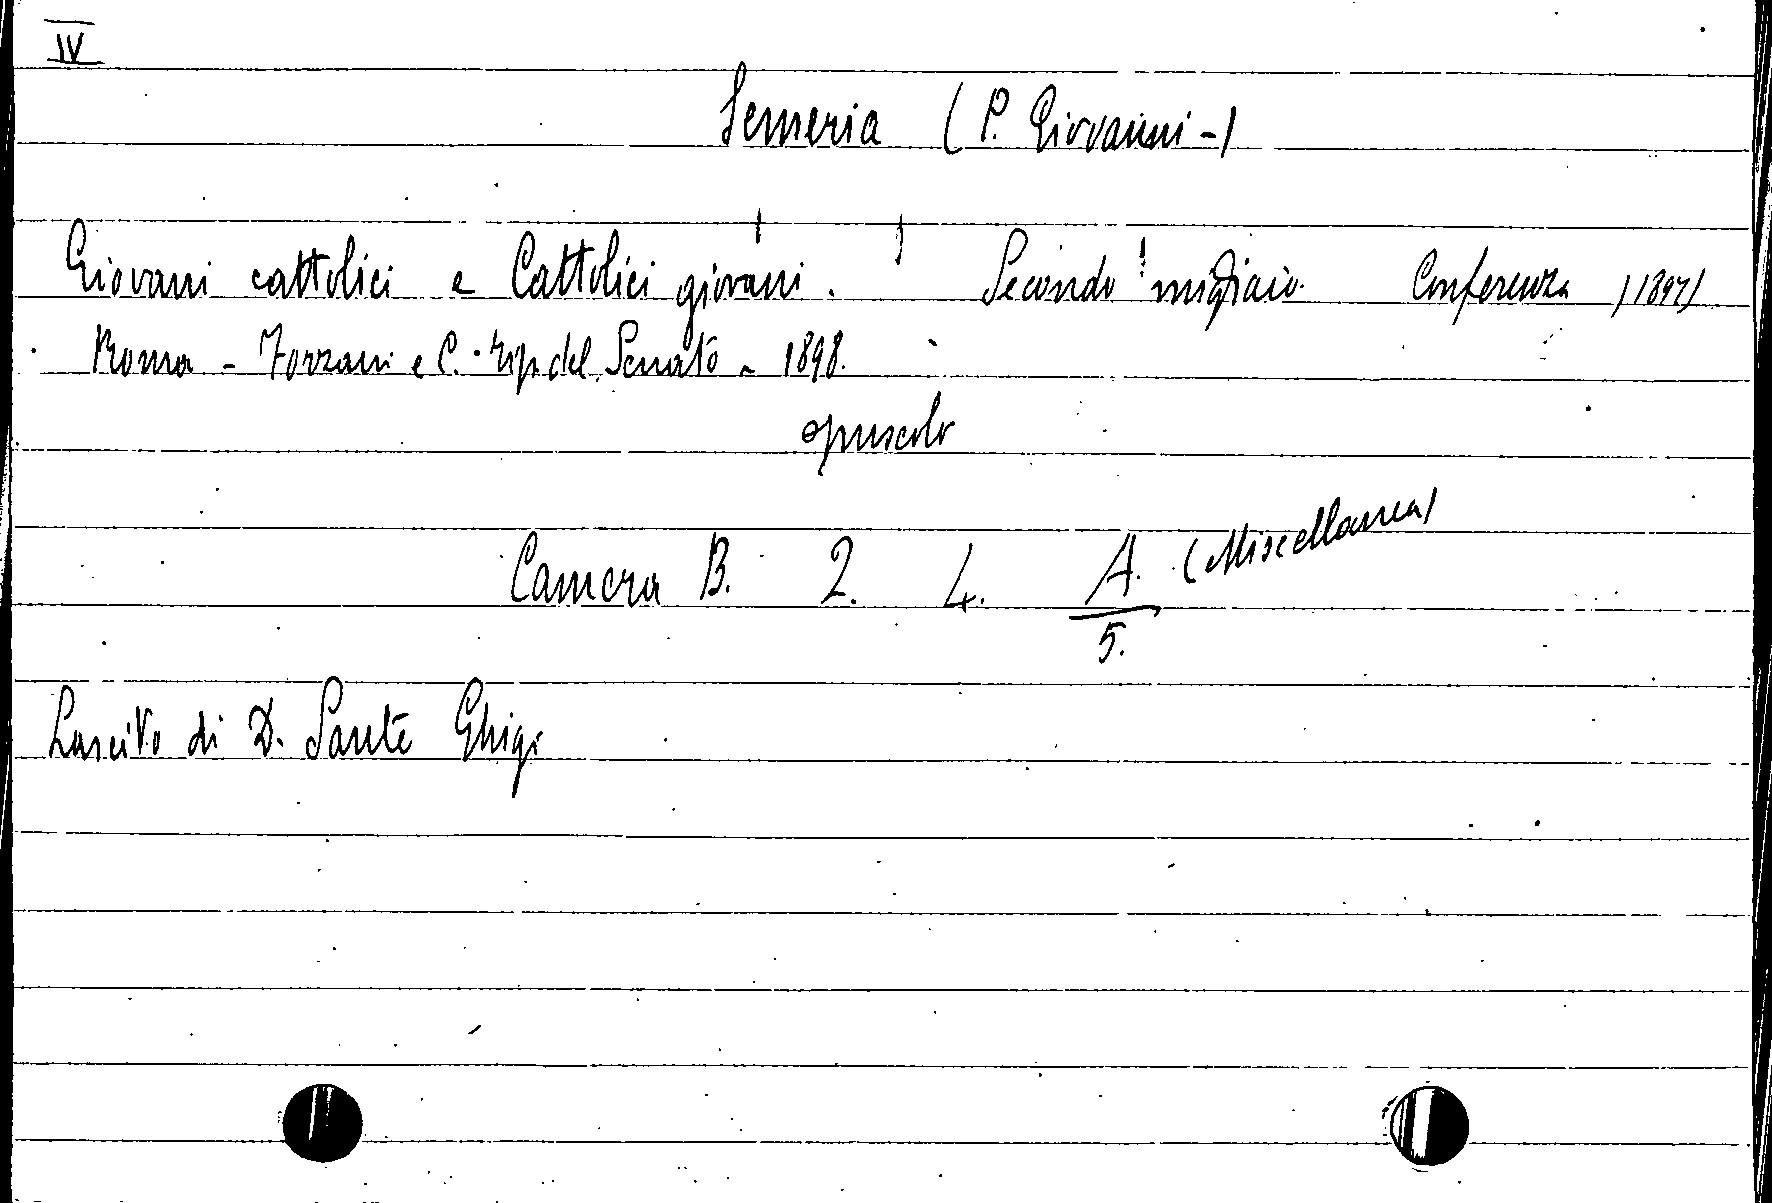 IV
Semeria (P. Giovanni -)
Giovani cattolici e Cattolici giovani. Secondo migliaio. Conferenza (1897)
Roma - Forzani e C. Tip. del Senato - 1898.
opuscolo
Camera B. 2. 4. A. (Miscellanea)
5.
Lascito di D. Sante Ghigi